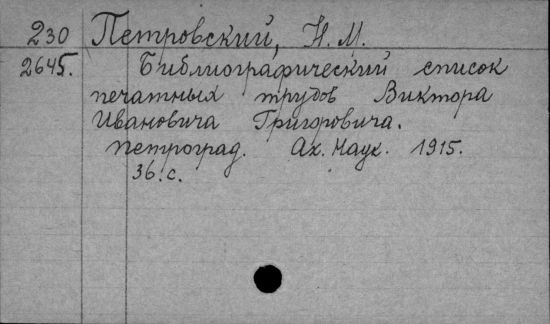 230 Петровский, Н. М.
2645. Библиографический список
печатных трудов Виктора
Ивановича Григоровича.
Петроград. Ак. Наук. 1915.
36. с.